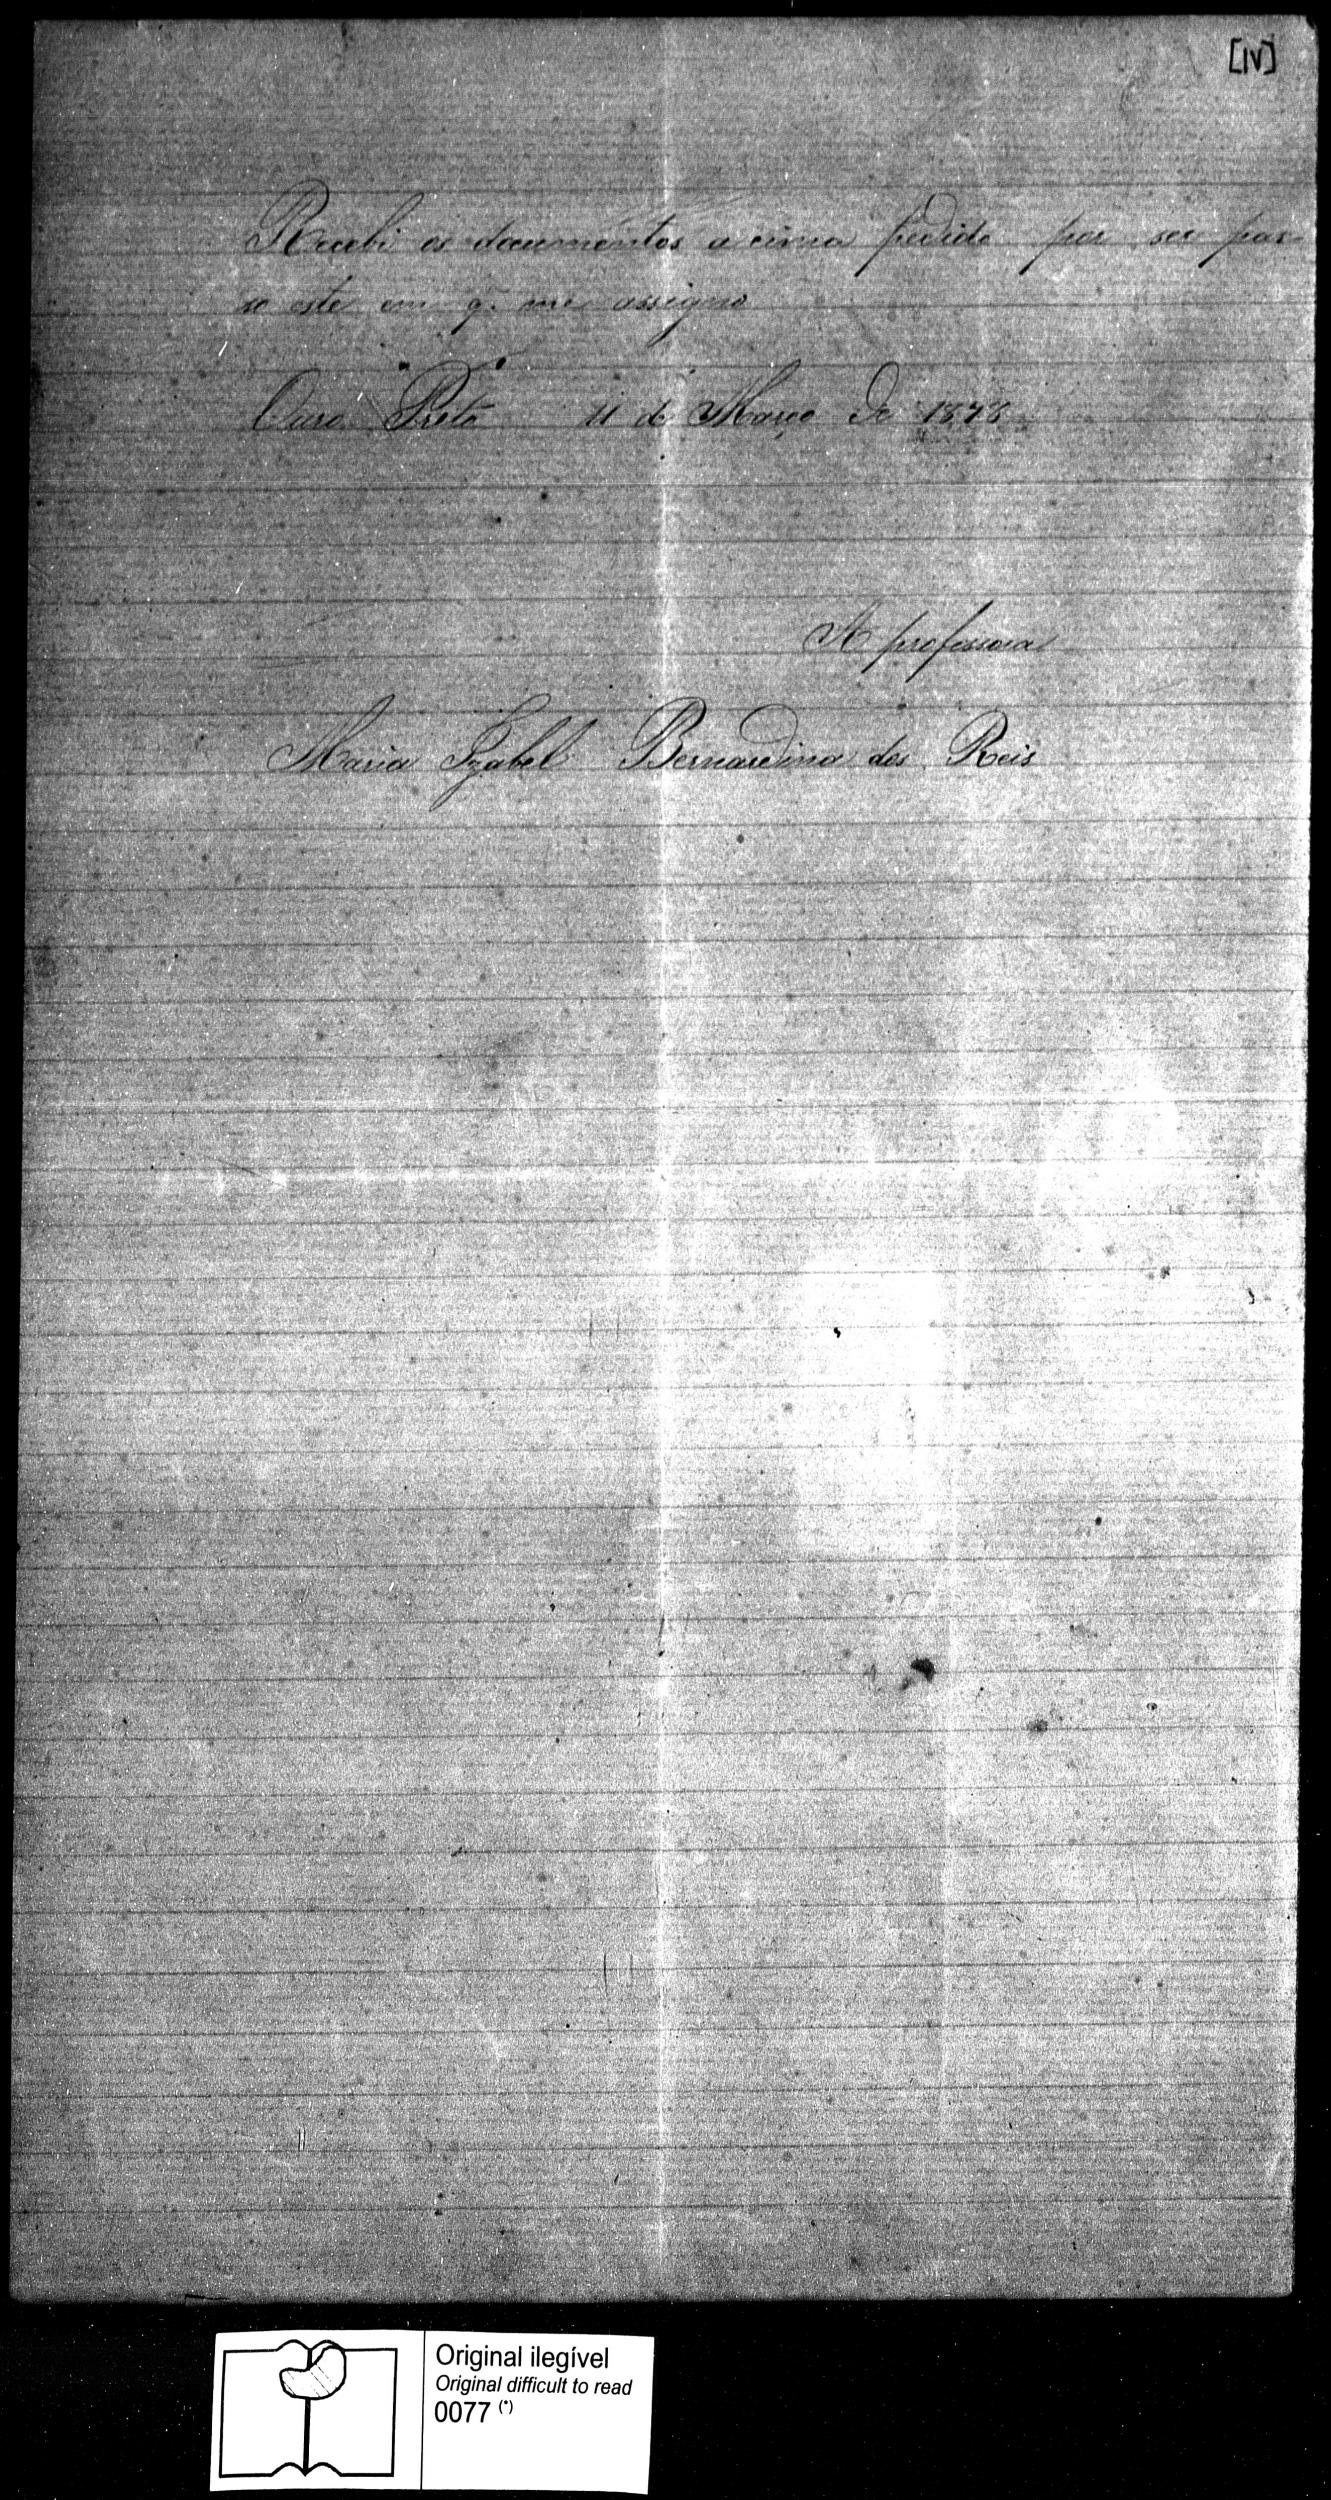 [IV]
Recebi os documentos a cima pedido por ser pas-
so este em q. me assigno
Ouro Preto 11 de Março de 1878
A professora
Maria Izabel Bernardina dos Reis
Original ilegível
Original difficult to read
0077 (*)